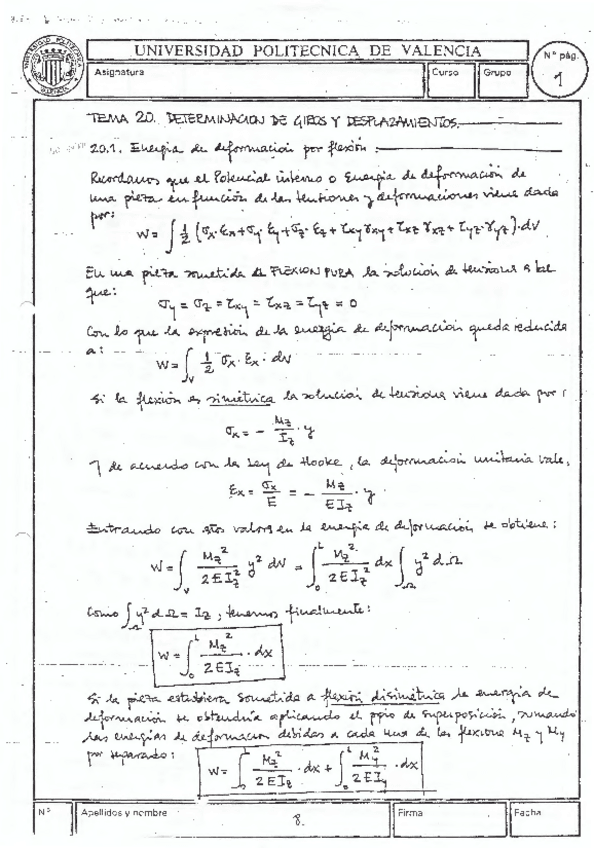 UNIVERSIDAD POLITECNICA DE VALENCIA
Nº pág.
1
Asignatura
Curso
Grupo
TEMA 20. DETERMINACION DE GIROS Y DESPLAZAMIENTOS.
20.1. Energía de deformación por flexión.
Recordamos que el Potencial interno o Energía de deformación de
una pieza en función de las tensiones y deformaciones viene dada
por:
W = ∫ 1/2 (σx·εx + σy·εy + σz·εz + τxy γxy + τxz γxz + τyz·γyz)·dV
En una pieza sometida a FLEXION PURA la solución de tensiones es tal
que:
σy = σz = τxy = τxz = τyz = 0
Con lo que la expresión de la energía de deformación queda reducida
a:
W = ∫V 1/2 σx·εx·dV
Si la flexión es simétrica la solución de tensiones viene dada por:
σx = - Mz/Iz · y
Y de acuerdo con la Ley de Hooke, la deformación unitaria vale,
εx = σx/E = - Mz/EIz · y
Entrando con estos valores en la energía de deformación se obtiene:
W = ∫V Mz²/2EIz² y² dV = ∫0L Mz²/2EIz² dx ∫Ω y² dΩ
Como ∫Ω y² dΩ = Iz, tenemos finalmente:
W = ∫0L Mz²/2EIz · dx
Si la pieza estubiera sometida a flexión disimétrica la energía de
deformación se obtendría aplicando el ppio de superposición, sumando
las energías de deformación debidas a cada una de las flexiones Mz y My
por separado:
W = ∫0L Mz²/2EIz · dx + ∫0L My²/2EIy · dx
Nº
Apellidos y nombre
8.
Firma
Fecha